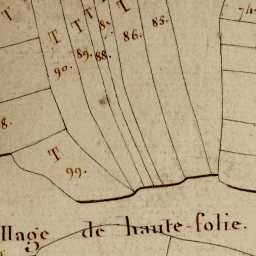 T T T T 8
85.
86.
T
89. 88.
90.
8.
T
99.
llage de haute-folie.